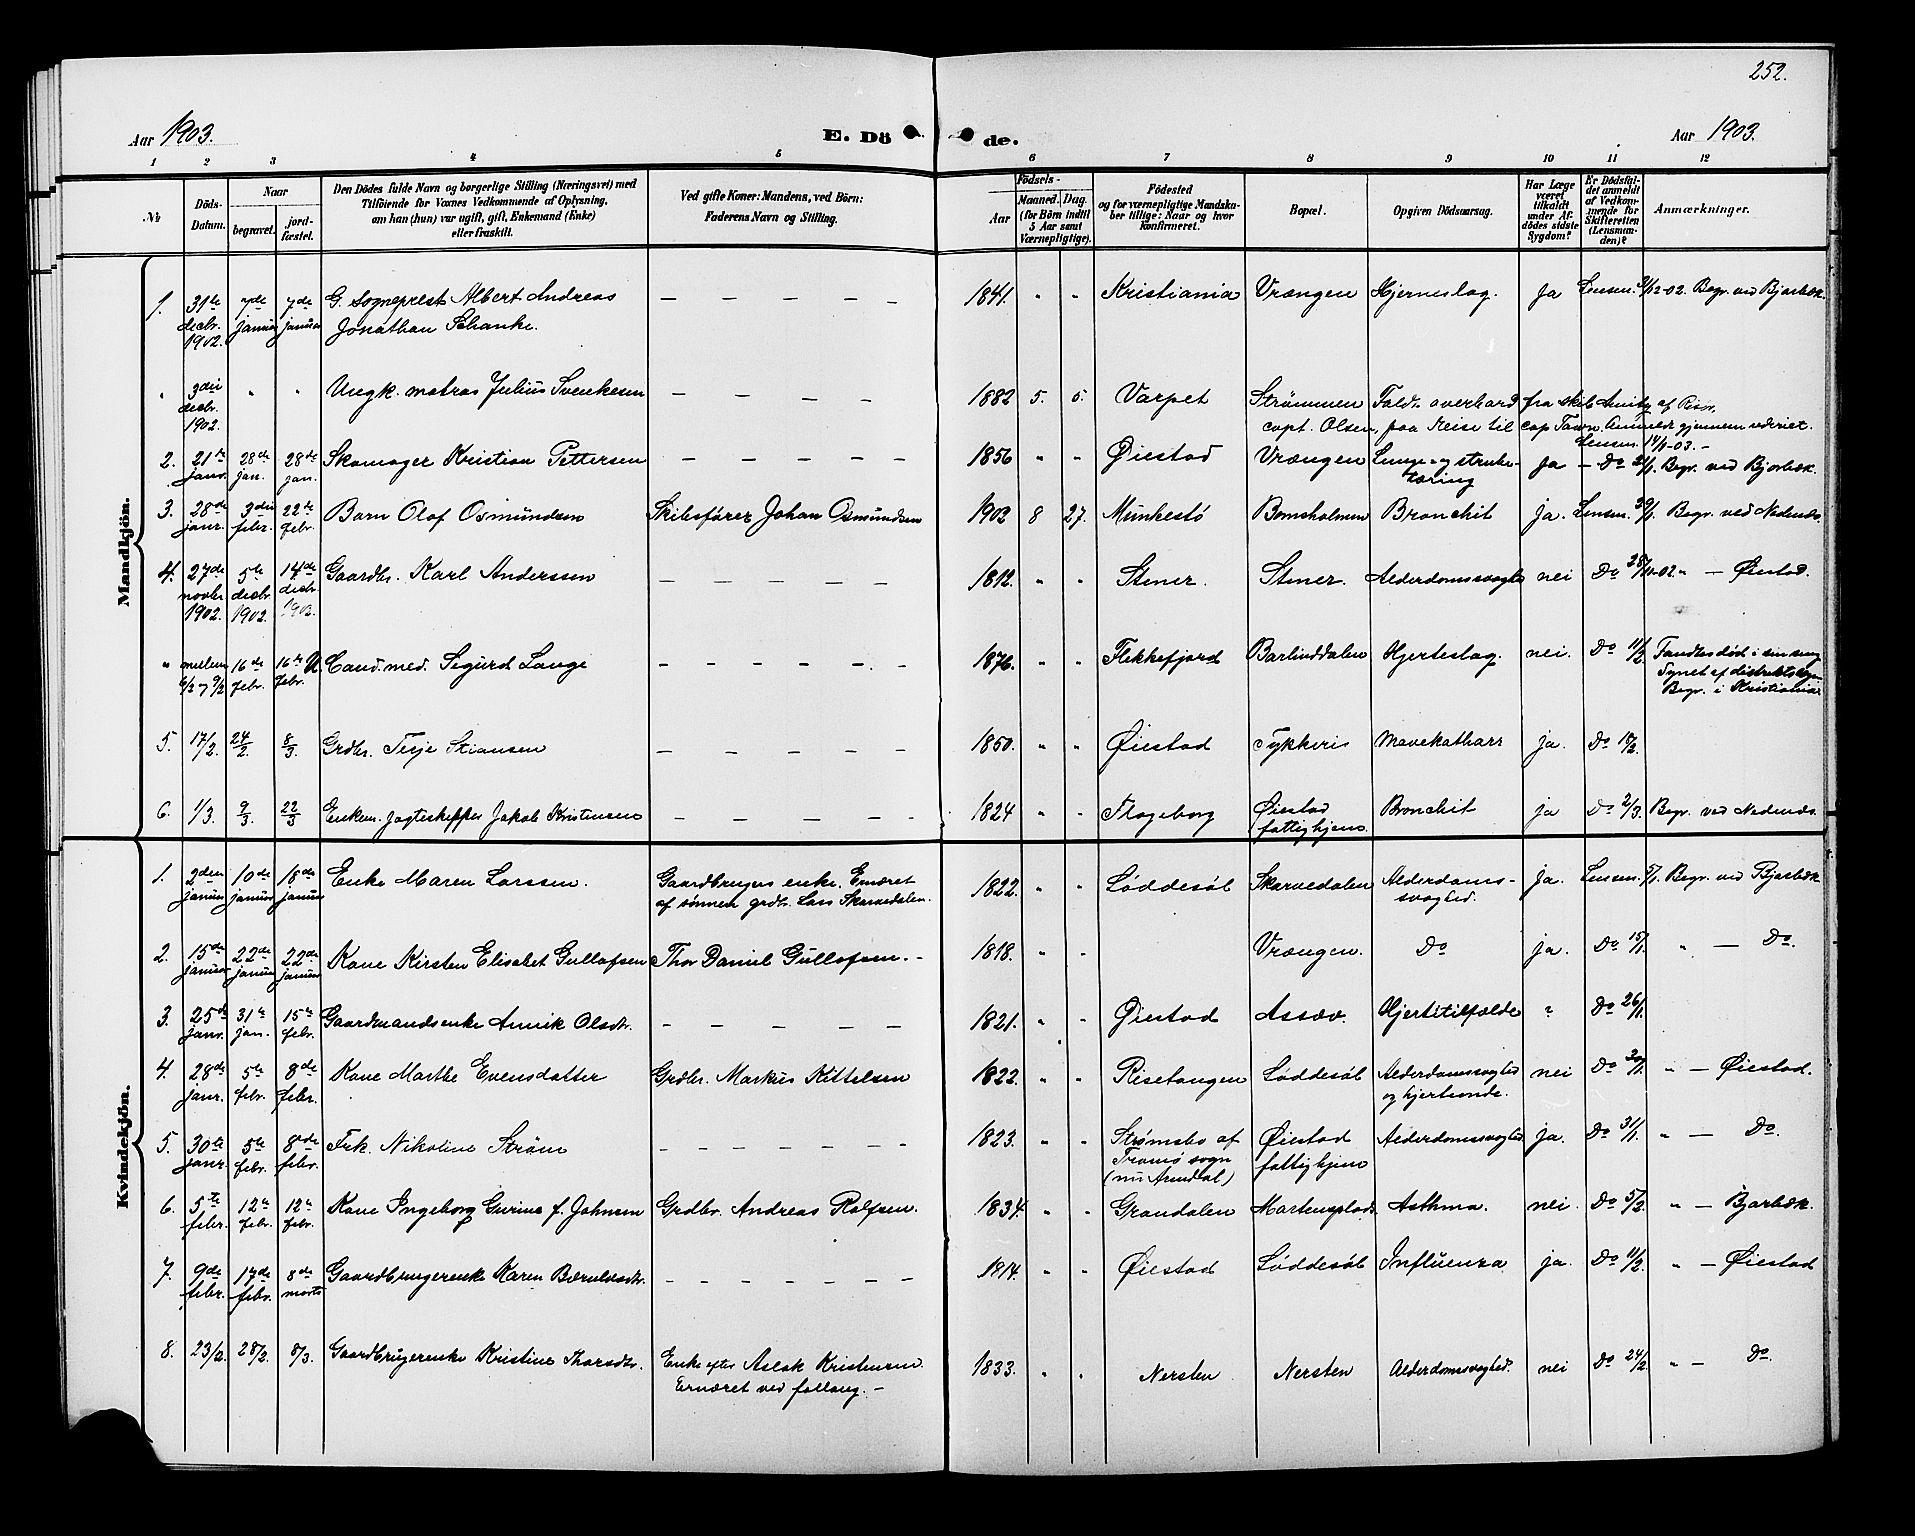 252.
Aar 1903. E. Dö de. Aar 1903.
1 2 3 4 5 6 7 8 9 10 11 12
No
Döds-Datum.
Naar
begravet.
jordfæstet.
Den Dödes fulde Navn og borgerlige Stilling (Næringsvei) med
Tilföiende for Voxnes Vedkommende af Oplysning,
om han (hun) var ugift, gift, Enkemand (Enke)
eller fraskilt.
Ved gifte Koner: Mandens, ved Börn:
Faderens Navn og Stilling.
Födsels-
Aar
Maaned. Dag.
(for Börn indtil
5 Aar samt
Værnepligtige).
Födested
og for værnepligtige Mandskaber tillige: Naar og hvor
konfirmeret.
Bopæl.
Opgiven Dödsaarsag.
Har Læge
været
tilkaldt
under Afdödes sidste
Sygdom?
Er Dödsfaldet anmeldt
af Vedkommende for
Skifteretten
(Lensmanden)?
Anmærkninger.
Mandkjön.
1. 31te decbr. 1902. 7de januar 7de januar G. sogneprest Albert Andreas Jonathan Schanke. — — — — — 1841. " " Kristiania Vrængen Hjerneslag. Ja Lensm. 31/12-02. Begr. ved Bjorbæk.
" 3die decbr. 1902. " " Ungk. matros Julius Svenkesen — — — — 1882 5. 5. Varpet Strømmen Faldt overbord fra skib Amity af Risør,
capt. Olsen, paa Reise til Cap Town. Anmeldt gjennem uderiet.
Lensm. 14/1-03. —
2. 21de janr. 28de jan. 28de jan. Skomager Kristian Pettersen — — — — 1856 " " Øiestad Vrængen Lunge- og strubetæring ja — Do 21/1. Begr. ved Bjorbæk
3. 28de janr. 3die febr. 22de febr. Barn Olaf Osmundsen Skibsfører Johan Osmundsen 1902 8 27. Munkestø Bomsholmen Bronchit ja. Lensm. 29/1. Begr. ved Nedenæs.
4. 27de novbr 1902. 5te decbr. 1902. 14de decbr. 1902. Gaardbr. Karl Anderssen — — — — — 1812. " " Stener. Stener. Alderdomssvaghed nei Do 28/11-02 " — Øiestad.
" mellem 6/2 og 9/2 16de febr. 16de febr. U Cand. med. Sigurd Lange — — — — — 1876. " " Flekkefjord Barlinddalen Hjerteslag. nei. Do 11/2 Fandtes død i sin seng
Synet af distriktslægen
Begr. i Kristiania
5. 17/2. 24/2 8/3. Grdbr. Terje Stiansen — — — — — 1850. " " Øiestad Tykkeris Mavekatharr ja. Do 18/2.
6. 1/3. 9/3. 22/3 Enkem. jagteskipper Jakob Kristensen — — — — — 1824 " " Flageborg Øiestad fattighjem. Bronchit ja Do 2/3. Begr. ved Nedenæs.
Kvindekjön.
1. 2den januar 10de januar 15de januar Enke Maren Larssen. Gaardbrugers enke. Ernæret
af sønnen grdbr. Lars Skarvedalen. 1822. " " Løddesøl Skarvedalen Alderdoms-svaghed. ja. Lensm. 5/1. Begr. ved Bjorbæk
2. 15de januar 22de januar 22de januar Kone Kirsten Elisabet Gullofsen Thor Daniel Gullofsen. - 1818. " " Vrængen. Do ja. Do 15/1. " — Do.
3. 25de janr. 31te jan. 15de febr. Gaardmandsenke Annik Olsdtr. — — — — — 1821. " " Øiestad Assæv. Hjertetilfælde " Do 26/1.
4. 28de janr. 5te febr. 8de febr. Kone Marthe Evensdatter Grdbr. Markus Kittelsen 1822. " " Risetangen Løddesøl Alderdomssvaghed
og hjerteonde. nei Do 30/1. " — Øiestad.
5. 30te janr. 5te febr. 8de febr. Frk. Nikoline Strøm — — — — — 1823. " " Strømsbo af
Tromø sogn
(nu Arendal) Øiestad fattighjem Alderdomssvaghed. ja. Do 31/1. " — Do.
6. 5te febr. 12te febr. 12te febr. Kone Ingeborg Gurine f. Johnsen Grdbr. Andreas Rolfsen. 1834. " " Grandalen Martensplads Asthma. nei. Do 5/2. " — Bjorbæk.
7. 9de febr. 17de febr. 8de marts Gaardbrugerenke Karen Bærulsdtr. — — — — — 1914. " " Øiestad Løddesøl Influenza ja. Do 11/2. " — Øiestad
8. 23/2. 28/2. 8/3. Gaardbrugerenke Kristine Thorsdtr. Enke efter Aslak Kristensen.
Ernæret ved follaug. - 1833. " " Nersten. Nersten Alderdomssvaghed. nei Do 24/2 " — Do.